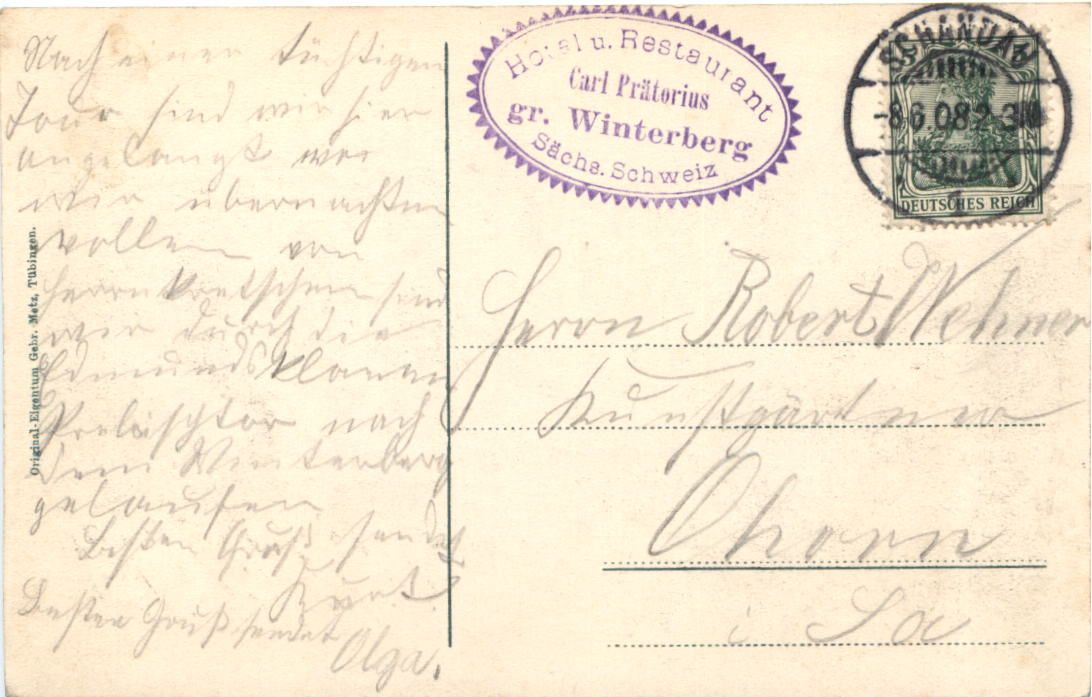 Nach einer tüchtigen
Tour sind wir hier
angelangt wo
wir übernachten
wollen von
Herrn sind
wir durch die
Edmundsklamm
Prebischtor nach
dem Winterberg
gelaufen
Besten Gruß sendet
Kurt.
Besten Gruß sendet
Olga.
Original-Eigentum Gebr. Metz, Tübingen.
Hotel u. Restaurant
Carl Prätorius
gr. Winterberg
Sächs. Schweiz
SCHANDAU
-8.6.08.2-3N
1
DEUTSCHES REICH
Herrn Robert Wehner
Kunstgärtner
Ohorn
i Sa